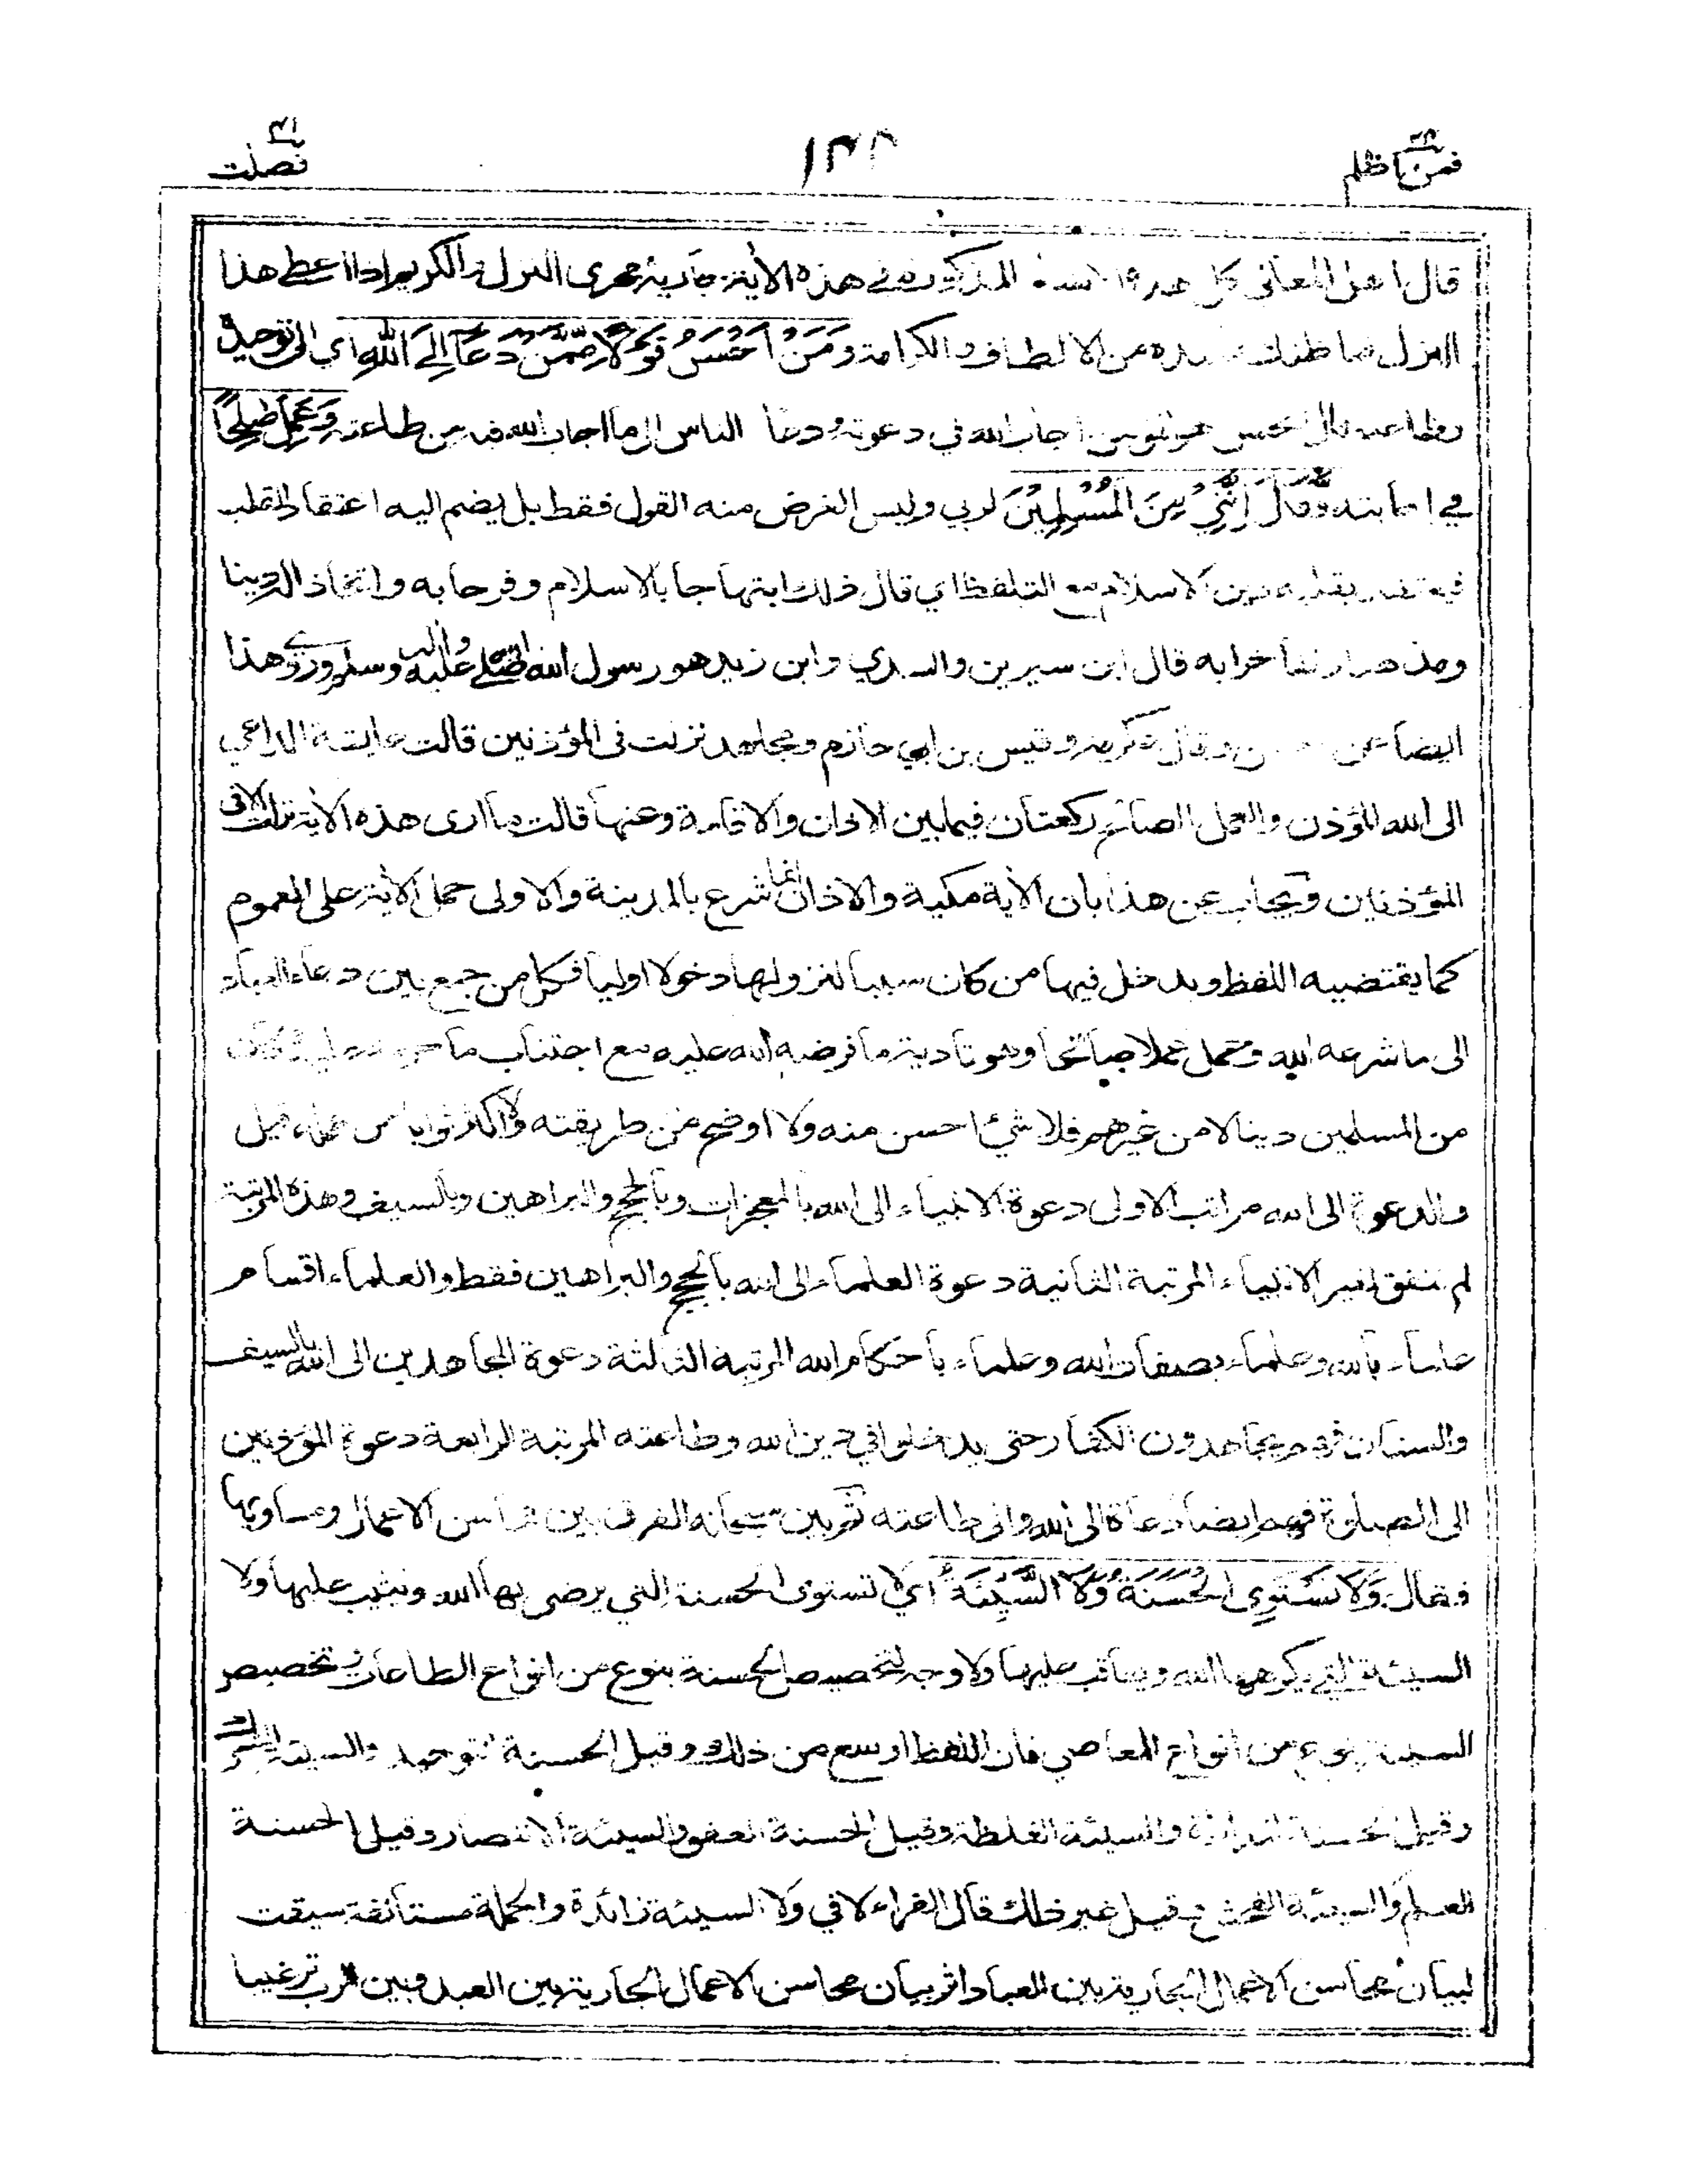 فمن اظلم
١٢٢
فصلت
قال اهل المعاني كل هذه الاشياء المذكورة في هذه الأية جارية مجرى النزل والكريم اذا اعطى هذا
النزل فما ظنك بما بعده من الالطاف والكرامة وَمَنْ اَحْسَنُ قَوْلًا مِّمَّنْ دَعَا إِلَى اللهِ اي الى توحيده
وطاعته قال الحسن هو المؤمن اجاب الله في دعوته ودعا الناس الى ما اجاب الله فيه من طاعته وَعَمِلَ صٰلِحًا
في اجابته وَّقَالَ اِنَّنِيْ مِنَ الْمُسْلِمِيْنَ لربي وليس الغرض منه القول فقط بل يضم اليه اعتقاد القلب
فيعتقد بقلبه دين الاسلام مع التلفظ اي قال ذلك ابتهاجا بالاسلام وفرحا به واتخاذا له دينا
ومذهبا وتفاخرا به قال ابن سيرين والسدي وابن زيد هو رسول الله صلى الله عليه واله وسلم وروي هذا
ايضا عن الحسن وقال عكرمة وقيس بن ابي حازم ومجاهد نزلت في المؤذنين قالت عايشة الداعي
الى الله المؤذن والعمل الصالح ركعتان فيما بين الاذان والاقامة وعنها قالت ما ارى هذه الأية نزلت الا في
المؤذنين ويجاب عن هذا بان الأية مكية والاذان انما شرع بالمدينة والاولى حمل الأية على العموم
كما يقتضيه اللفظ ويدخل فيها من كان سببا لنزولها دخولا اوليا فكل من جمع بين دعاء العباد
الى ما شرعه الله وعمل عملا صالحا وهو تادية ما فرضه الله عليه مع اجتناب ما حرمه عليه وكان
من المسلمين دينا لا من غيرهم فلا شئ احسن منه ولا اوضح من طريقته ولا اكثر ثوابا من عمله قيل
والدعوة الى الله مراتب الاولى دعوة الانبياء الى الله بالمعجزات وبالحجج والبراهين وبالسيف وهذه المرتبة
لم تتفق لغير الانبياء المرتبة الثانية دعوة العلماء الى الله بالحجج والبراهين فقط والعلماء اقسام
علماء بالله وعلماء بصفات الله وعلماء باحكام الله المرتبة الثالثة دعوة المجاهدين الى الله بالسيف
والسنان فهم يجاهدون الكفار حتى يدخلوا في دين الله وطاعته المرتبة الرابعة دعوة المؤذنين
الى الصلوة فهم ايضا دعاة الى الله والى طاعته ثم بين سبحانه الفرق بين محاسن الاعمال ومساويها
فقال وَلَا تَسْتَوِى الْحَسَنَةُ وَلَا السَّيِّئَةُ اي لا تستوى الحسنة التي يرضى بها الله ويثيب عليها ولا
السيئة التي يكرهها الله ويعاقب عليها ولا وجه لتخصيص الحسنة بنوع من انواع الطاعات وتخصيص
السيئة بنوع من انواع المعاصي فان اللفظ اوسع من ذلك وقيل الحسنة التوحيد والسيئة الشرك
وقيل الحسنة المداراة والسيئة الغلظة وقيل الحسنة العفو والسيئة الانتصار وقيل الحسنة
العلم والسيئة الفحش وقيل غير ذلك قال الفراء لا في ولا السيئة زائدة والجملة مستأنفة سيقت
لبيان محاسن الاعمال الجارية بين العباد اثر بيان محاسن الاعمال الجارية بين العبد وبين الرب ترغيبا